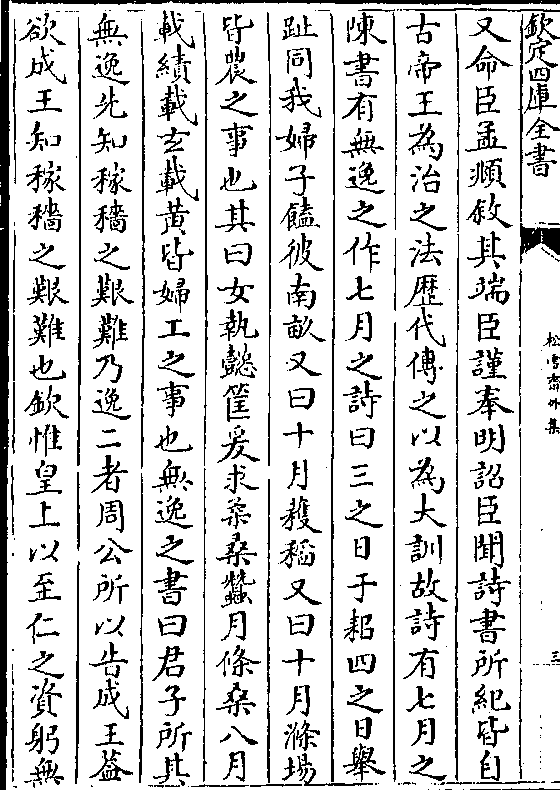 欽定四庫全書
松雪齋外集
三
又命臣孟頫敘其端臣謹奉明詔臣聞詩書所紀皆自
古帝王為治之法歷代傳之以為大訓故詩有七月之
陳書有無逸之作七月之詩曰三之日于耜四之日舉
趾同我婦子饁彼南畝又曰十月穫稻又曰十月滌場
皆農之事也其曰女執懿筐爰求柔桑蠶月條桑八月
載績載玄載黃皆婦工之事也無逸之書曰君子所其
無逸先知稼穡之艱難乃逸二者周公所以告成王蓋
欲成王知稼穡之艱難也欽惟皇上以至仁之資躬無